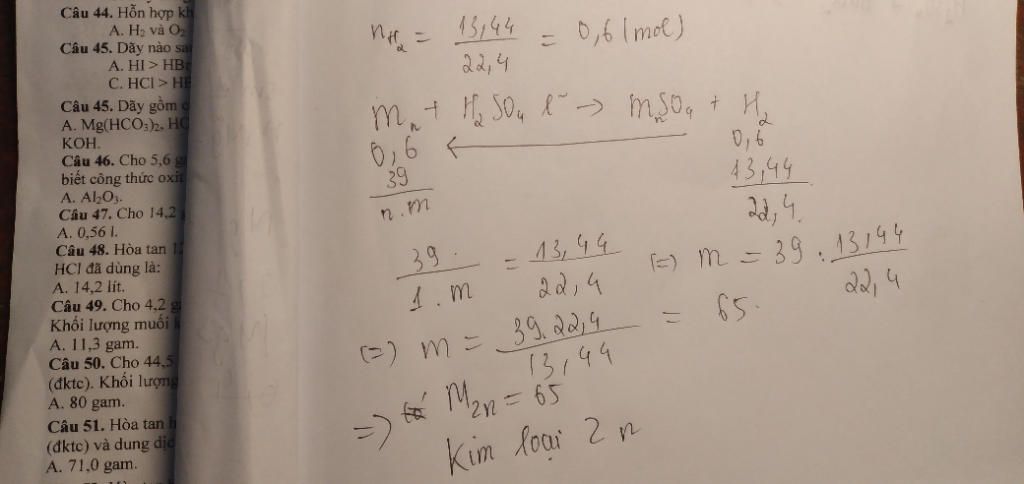 Câu 44. Hỗn hợp
A. H₂ và O₂
Câu 45. Dãy nào
A. HI > HBr
C. HCl >
Câu 45. Dãy gồm
A. Mg(HCO₃)₂,
KOH.
Câu 46. Cho 5,6
biết công thức oxit
A. Al₂O₃.
Câu 47. Cho 14,2
A. 0,56 l.
Câu 48. Hòa tan
HCl đã dùng là:
A. 14,2 lít.
Câu 49. Cho 4,2
Khối lượng muối
A. 11,3 gam.
Câu 50. Cho 44,5
(đktc). Khối lượng
A. 80 gam.
Câu 51. Hòa tan
(đktc) và dung
A. 71,0 gam.
n H₂ = 13,44 / 22,4 = 0,6 (mol)
Mn + H₂SO₄ l → MnSO₄ + H₂
0,6 ← 0,6
39 / n.m 13,44 / 22,4
39 / 1.m = 13,44 / 22,4 (=) m = 39 . 13,44 / 22,4
(=) m = 39.22,4 / 13,44 = 65
=> M Zn = 65
Kim loại Zn